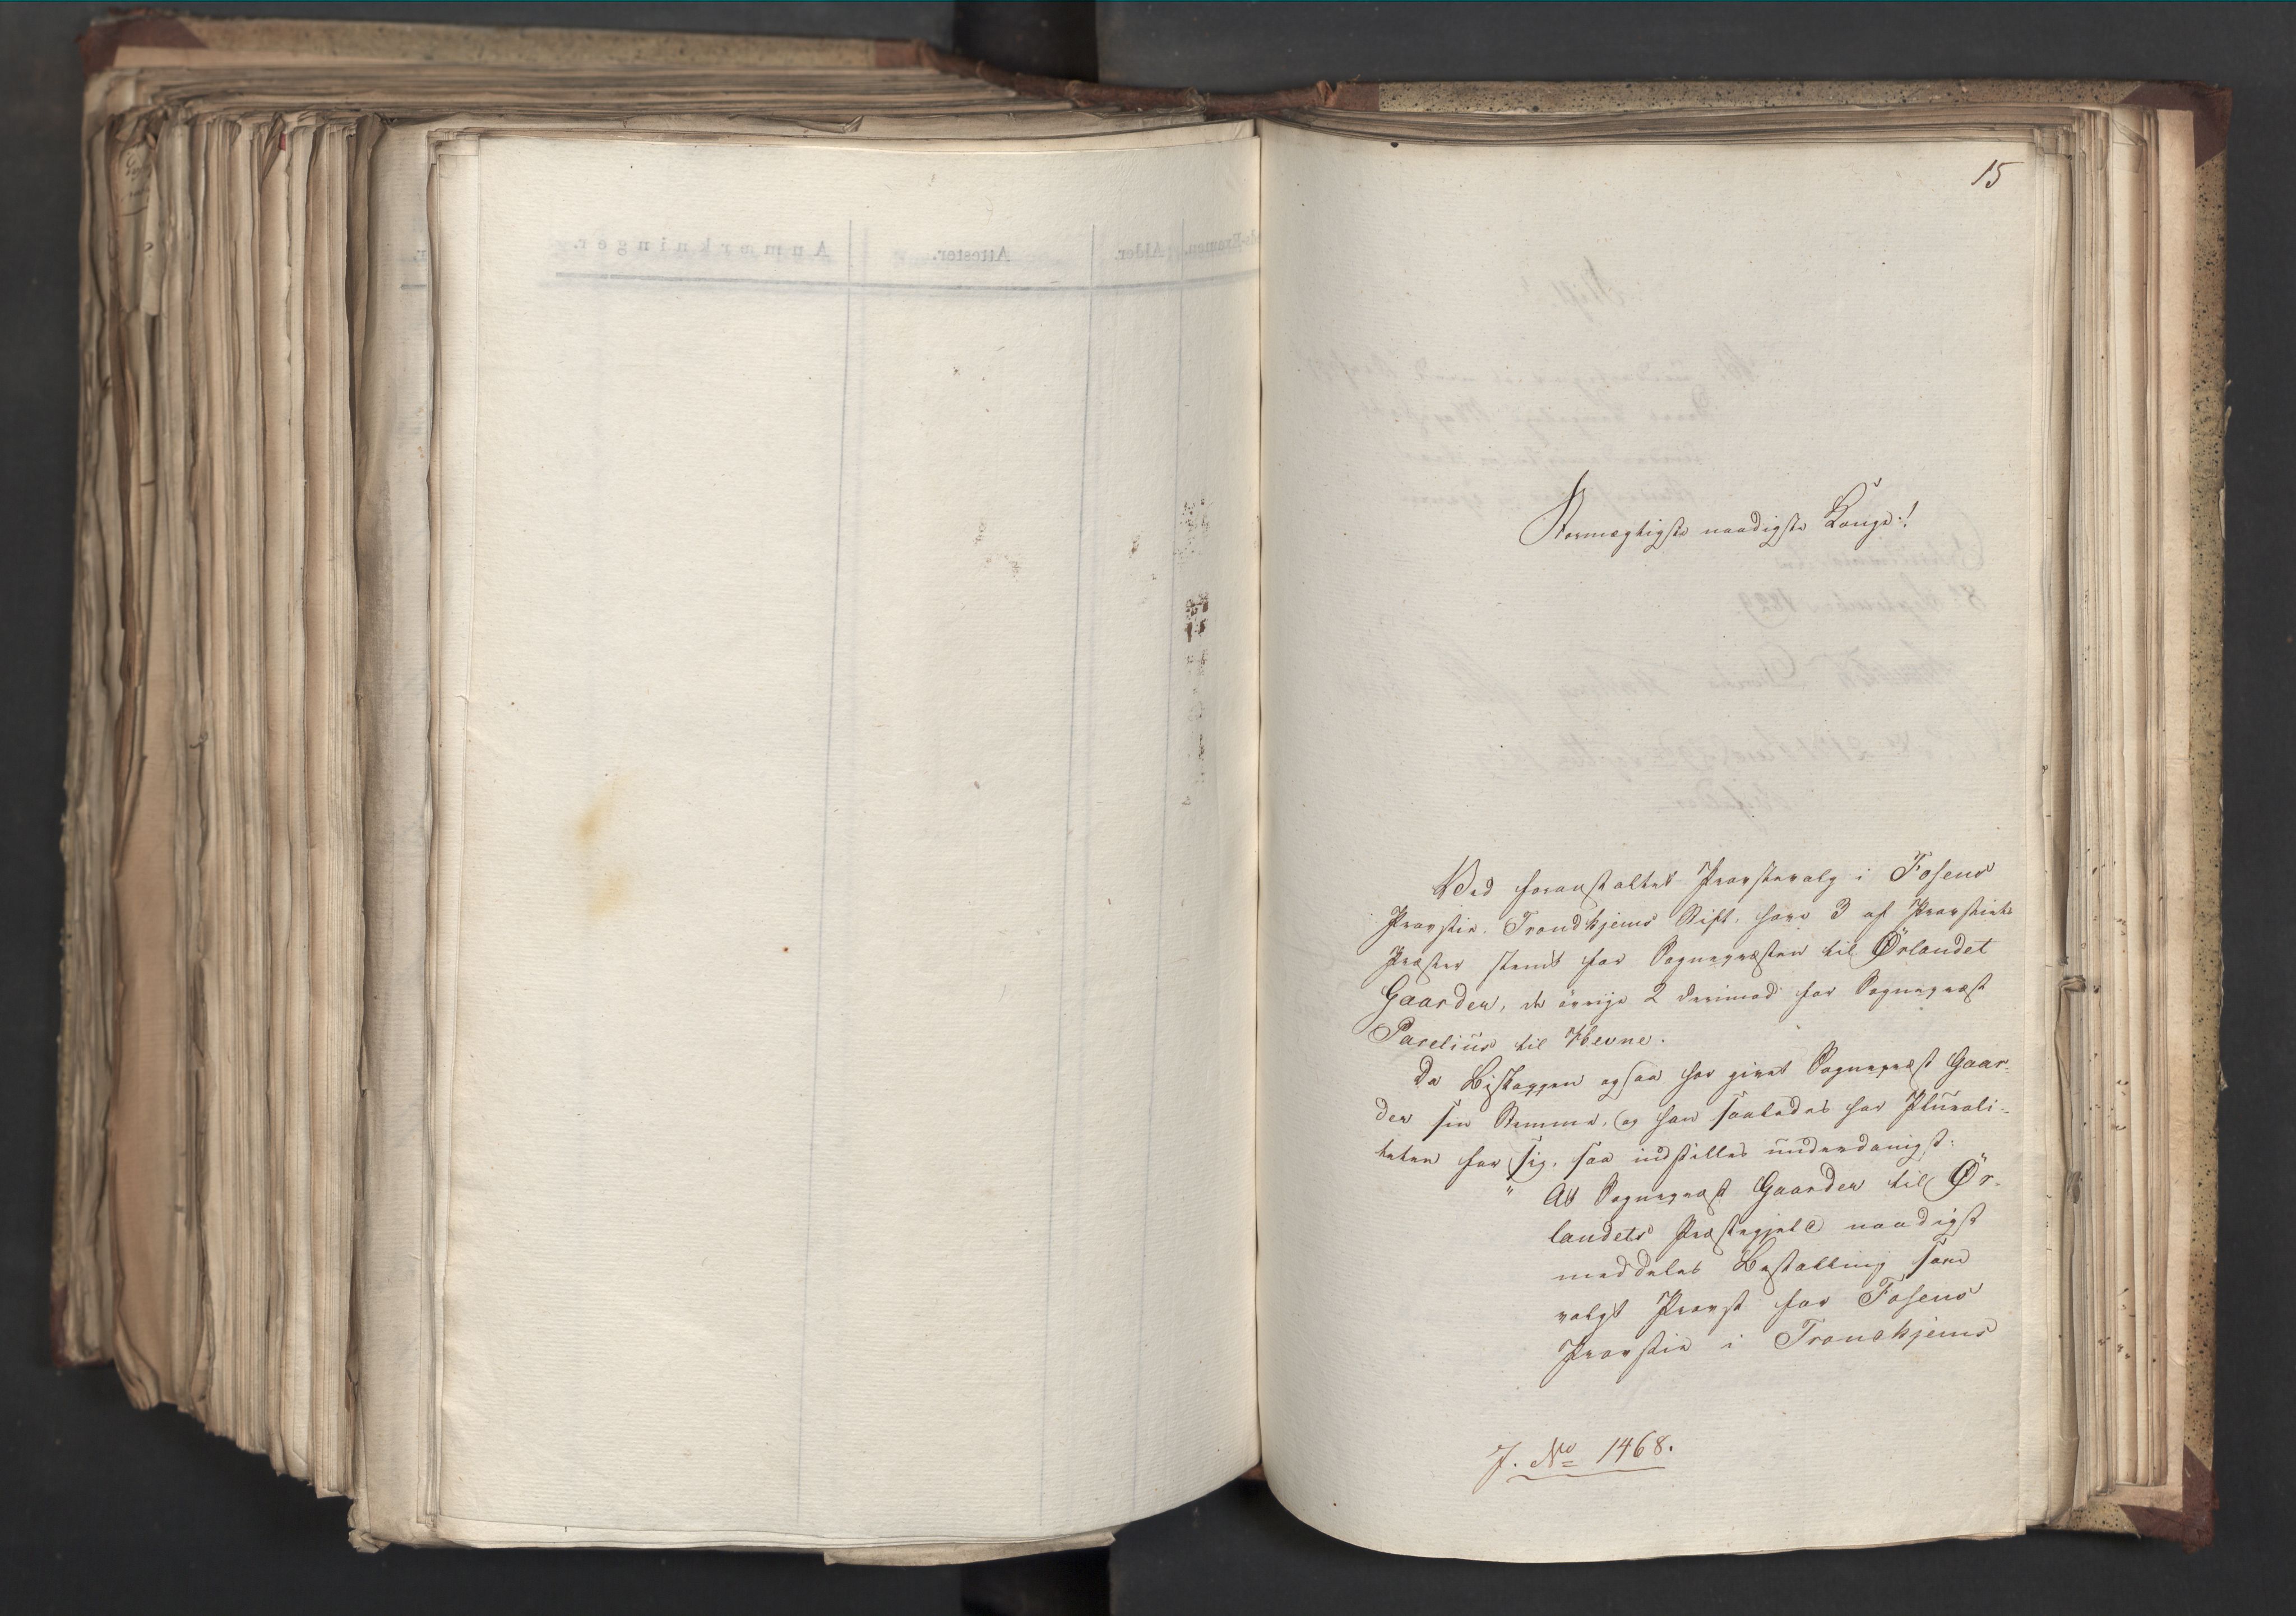 15
Stormægtigste naadigste Konge!
Ved foranstaltet Provstevalg i Fosens
Provstie, Trondhjems Stift, have 3 af Provstiets
Præster stemt for Sognepræsten til Ørlandet
Gaarder, de øvrige 2 derimod for Sognepræst
Parelius til Hevne.
Da Biskoppen ogsaa har givet Sognepræst Gaar-
der sin Stemme, og han saaledes har Plurali-
teten for sig, saa indstilles underdanigst:
" At Sognepræst Gaarder til Ør-
landets Præstegjeld naadigst
meddeles Bestalling som
valgt Provst for Fosens
Provstie i Trondhjems
J. No 1468.